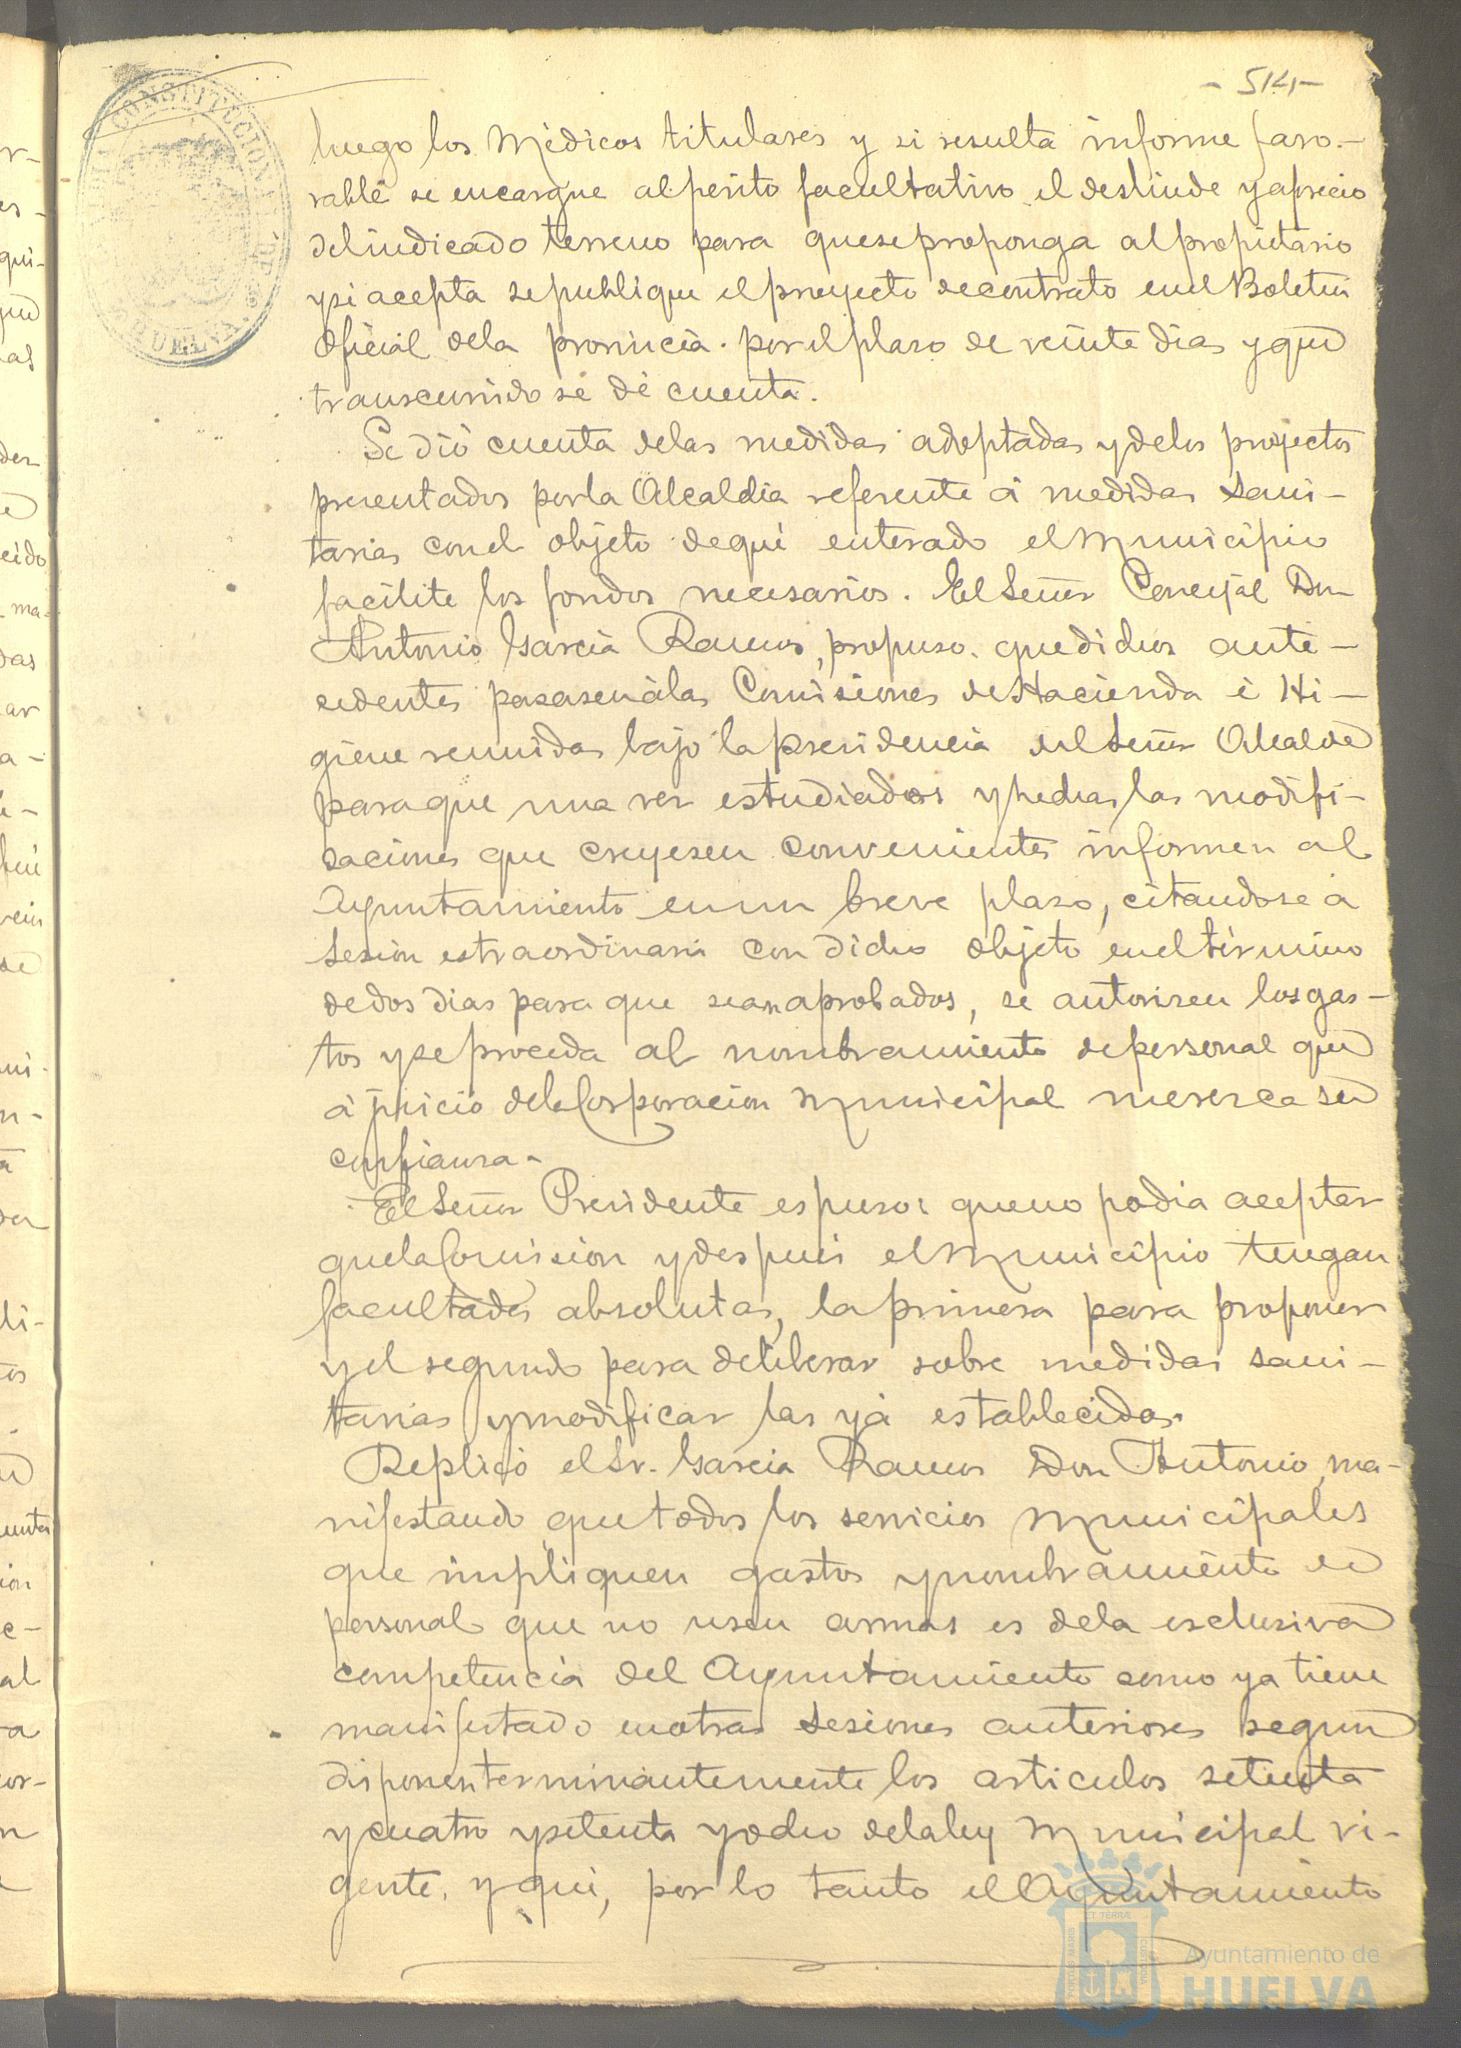 - 514 -
luego los Médicos titulares y si resulta informe favo-
rable se encargue al perito facultativo el deslinde y aprecio
del indicado terreno para que se proponga al propietario
y si acepta se publique el proyecto de contrato en el Boletin
Oficial de la provincia por el plazo de veinte dias y que
transcurrido se dé cuenta.
Se dió cuenta de las medidas adoptadas y de los proyectos
presentados por la Alcaldia referente á medidas sani-
tarias con el objeto de qué enterado el Municipio
facilite los fondos necesarios. El Señor Concejal Don
Antonio Garcia Ramos, propuso que dichos ante-
cedentes pasasen á las Comisiones de Hacienda é Hi-
giene reunidas bajo la presidencia del Señor Alcalde
para que una vez estudiados y hechas las modifi-
caciones que creyesen convenientes informen al
Ayuntamiento en un breve plazo, citandose á
sesion estraordinaria con dicho objeto en el término
de dos dias para que sean aprobados, se autoricen los gas-
tos y se proceda al nombramiento de personal que
á juicio de la Corporacion Municipal merezca su
confianza.
El Señor Presidente espuso: que no podia aceptar
que la Comision y despues el Municipio tengan
facultades absolutas, la primera para proponer
y el segundo para deliberar sobre medidas sani-
tarias y modificar las yá establecidas.
Replicó el Sr. Garcia Ramos Don Antonio, ma-
nifestando que todos los servicios municipales
que impliquen gastos y nombramiento de
personal que no usen armas es de la esclusiva
competencia del Ayuntamiento como ya tiene
manifestado en otras sesiones anteriores segun
disponen terminantemente los articulos setenta
y cuatro y setenta y ocho de la ley Municipal vi-
gente, y qué, por lo tanto el Ayuntamiento
Ayuntamiento de
HUELVA